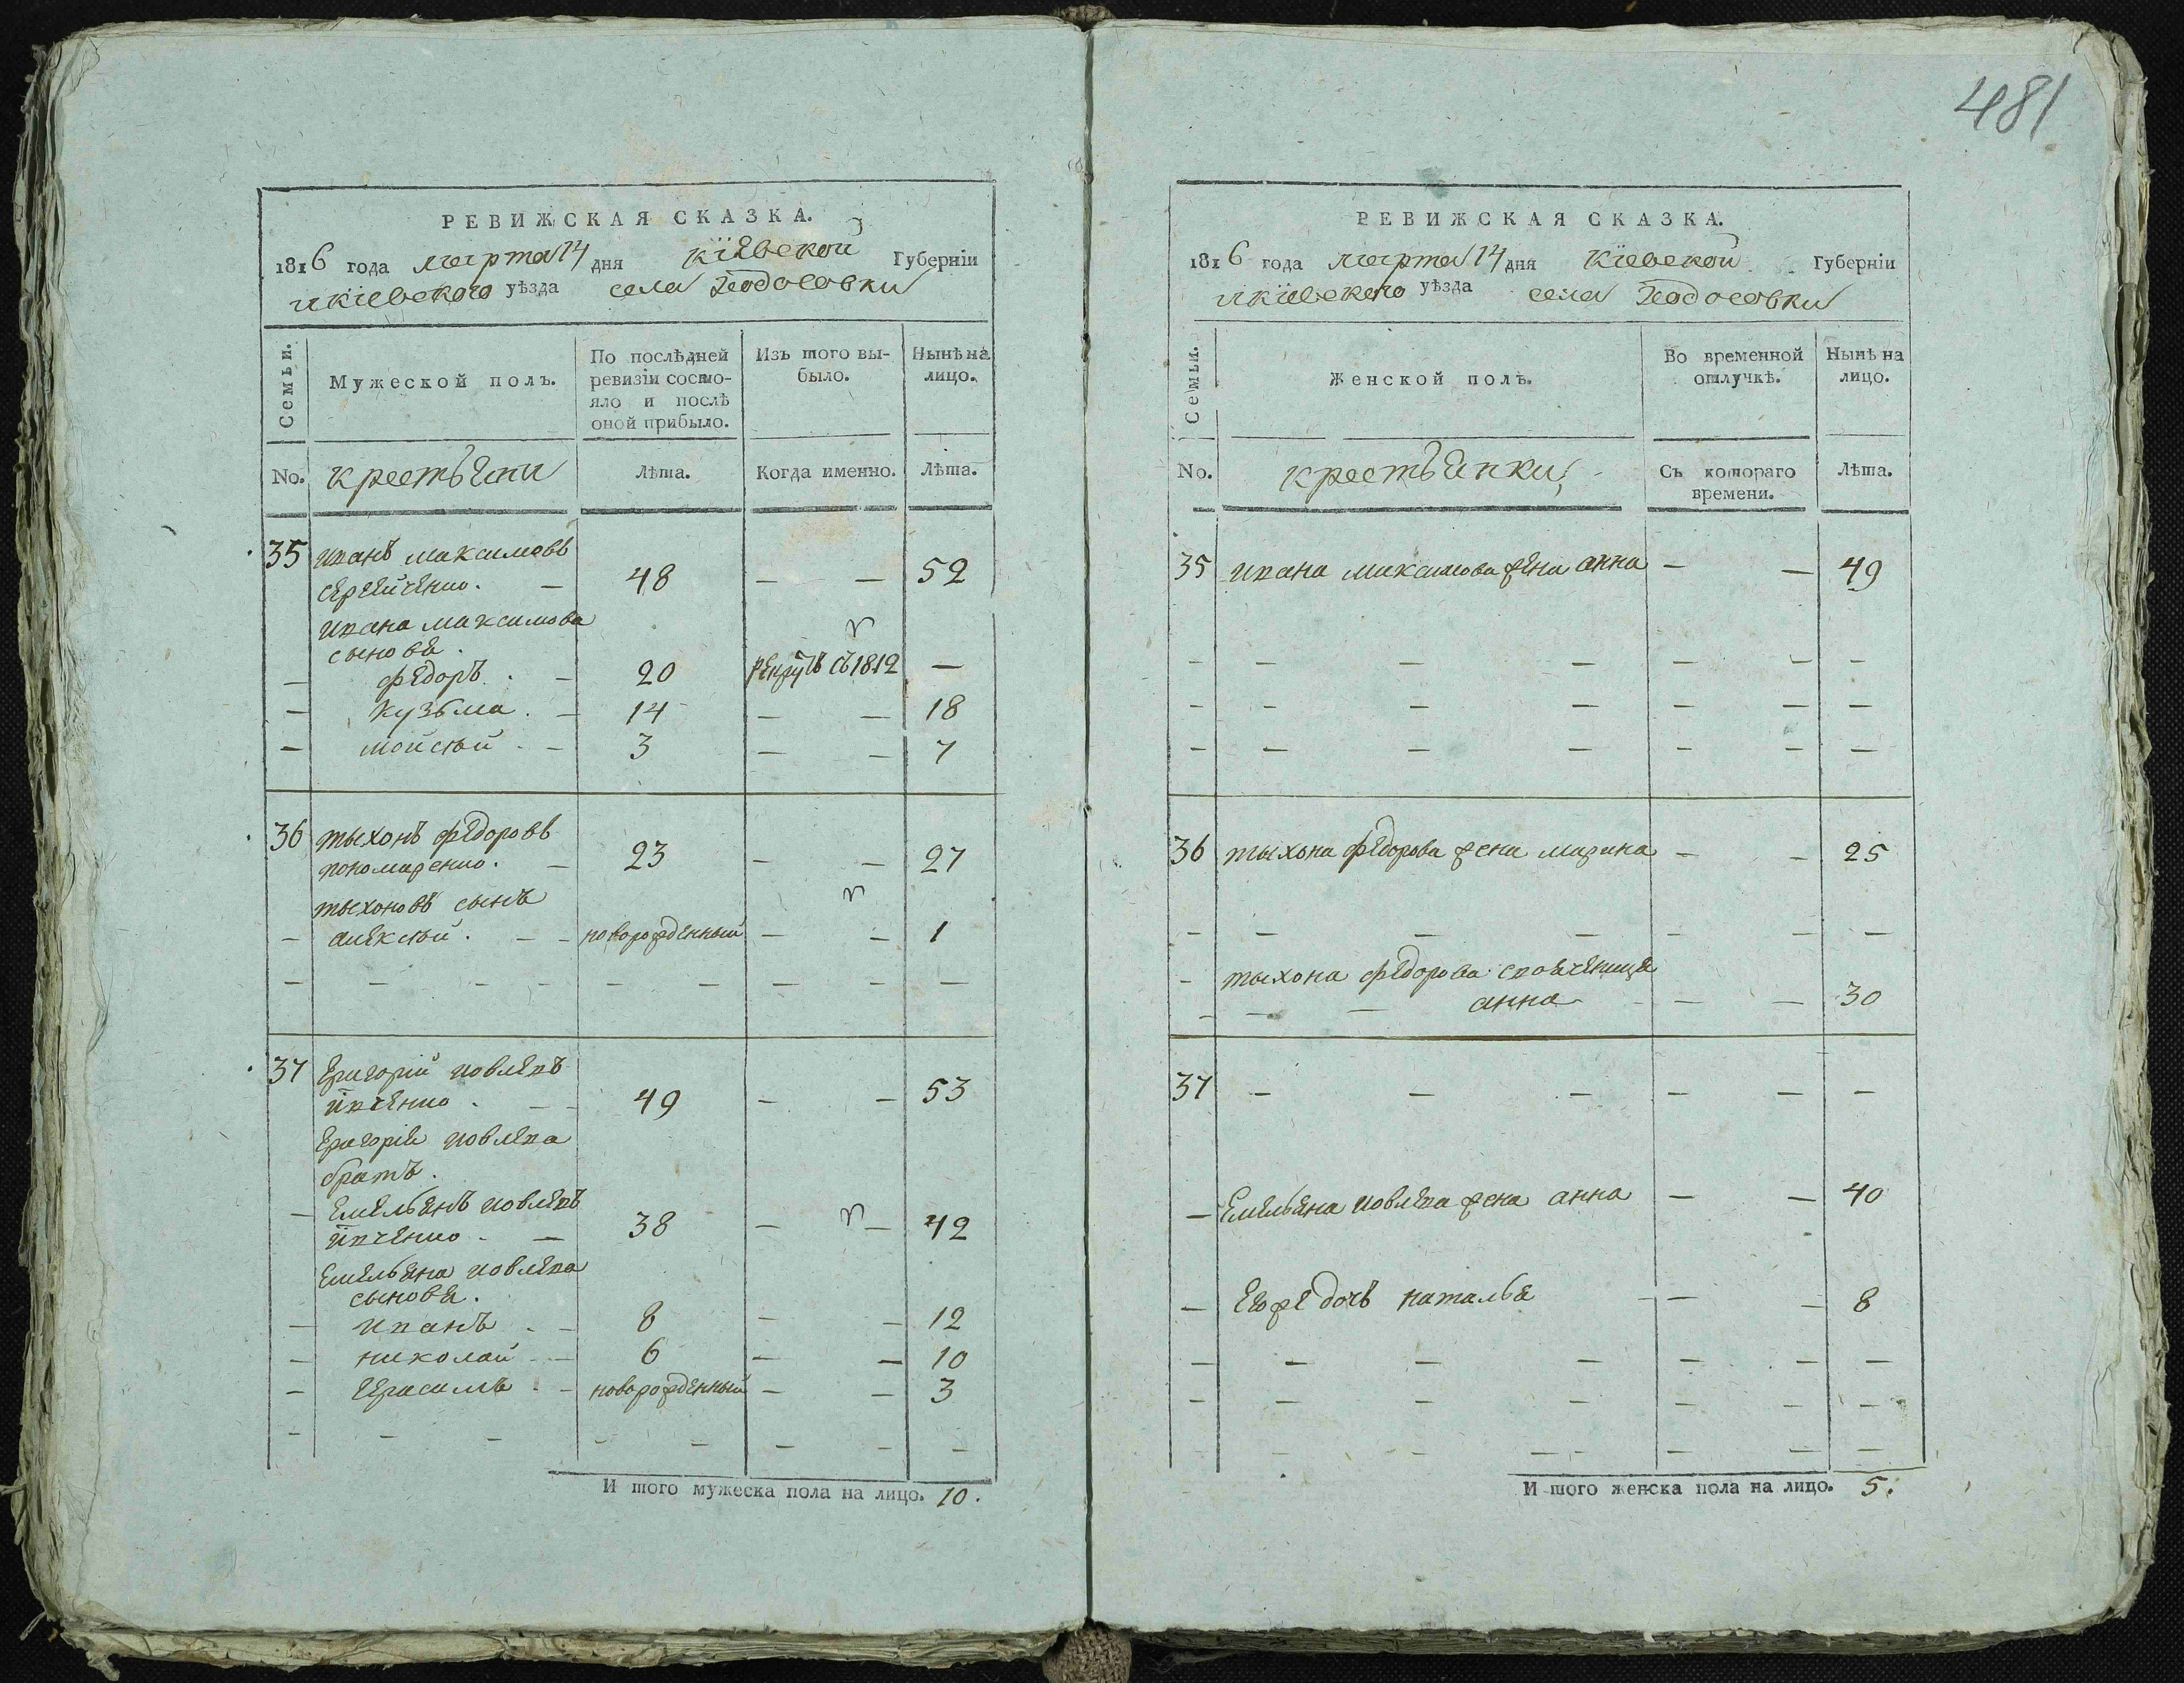 481
РЕВИЖСКАЯ СКАЗКА.
1816 года марта 14 дня Кіевской Губерніи
икіевского уѣзда села Ходосовки
Семьи.
Мужеской полъ.
По послѣдней ревизіи состояло и послѣ оной прибыло.
Изъ того выбыло.
Нынѣ на лицо.
No.
крестьяни
Лѣта.
Когда именно.
Лѣта.
35 иванъ максимовъ
48 — — 52
ивана максимова
сыновя.
— федоръ . — 20 рекрутъ съ 1812 —
— кузьма . — 14 — — 18
— мойсѣй . — 3 — — 7
36 тыхонъ федоровъ
пономаренко . — 23 — — 27
тыхоновъ сынъ
— алексѣй . — — новорожденный — — 1
— — — — — — — — —
37 Григорій
49 — — 53
Григорія
братъ .
— Емельянъ
38 — — 42
Емельяна
сыновя .
— иванъ . — 8 — — 12
— николай — — 6 — — 10
— Герасимъ . — новорожденный — — 3
— — — — — — — —
И того мужеска пола на лицо. 10.
РЕВИЖСКАЯ СКАЗКА.
1816 года марта 14 дня Кіевской Губерніи
икіевского уѣзда села Ходосовки
Семьи.
Женской полъ.
Во временной отлучкѣ.
Нынѣ на лицо.
No.
крестьянки
Съ котораго времени.
Лѣта.
35 ивана максимова жена анна — — 49
— — — — — — —
— — — — — — —
— — — — — — —
36 тыхона федорова жена марина — — 25
— — — — — — —
— тыхона федорова своячениця
— — — анна — — 30
37 — — — — — —
— Емельяна жена анна — — 40
— Егоже дочь наталья — — 8
— — — — — — —
— — — — — — —
— — — — — — —
И того женска пола на лицо. 5.